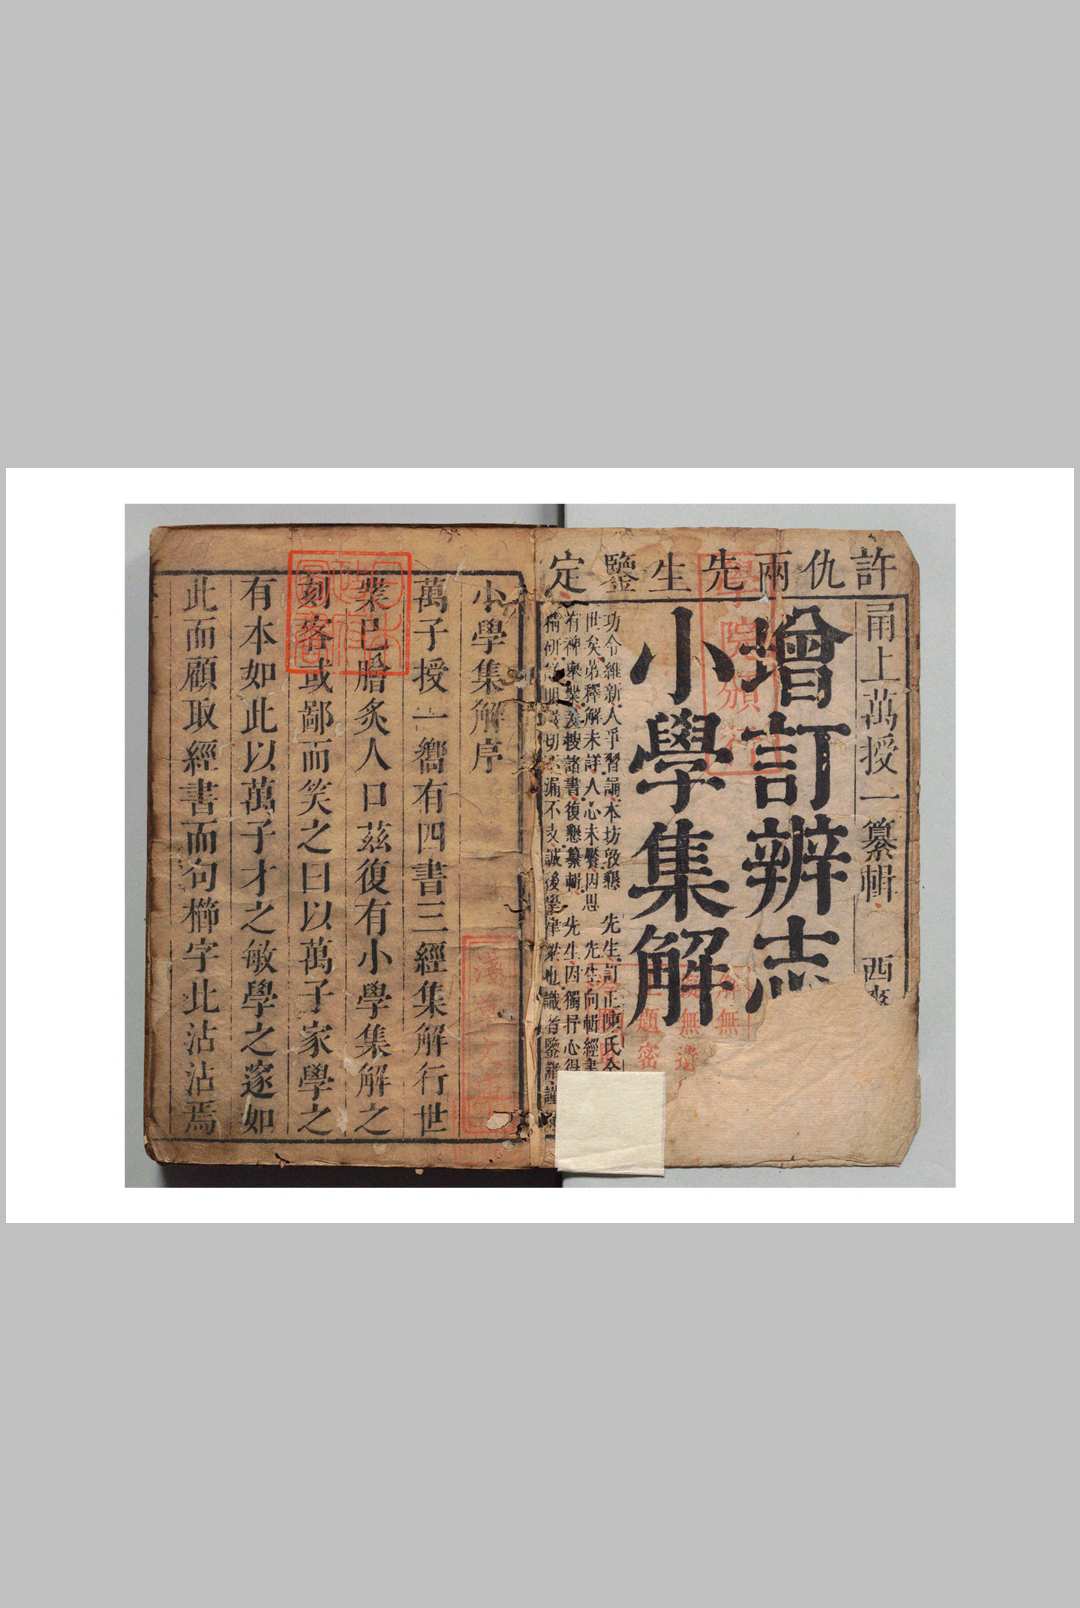 許仇兩先生鑒定
甬上萬授一纂輯 西爽
增訂辨志
小學集解
功令維新人爭習誦本坊敦懇 先生訂正陳氏
世矣第釋解未詳人心未饜因思 先生向輯經書
搜諸書復懇纂輯 先生因獨抒心得
漏不支誠後學津梁也識者鑒諸謹
學院頒行
小學集解序
萬子授一嚮有四書三經集解行世
業已膾炙人口茲復有小學集解之
刻客或鄙而笑之曰以萬子家學之
有本如此以萬子才之敏學之邃如
此而顧取經書而句櫛字比沾沾焉